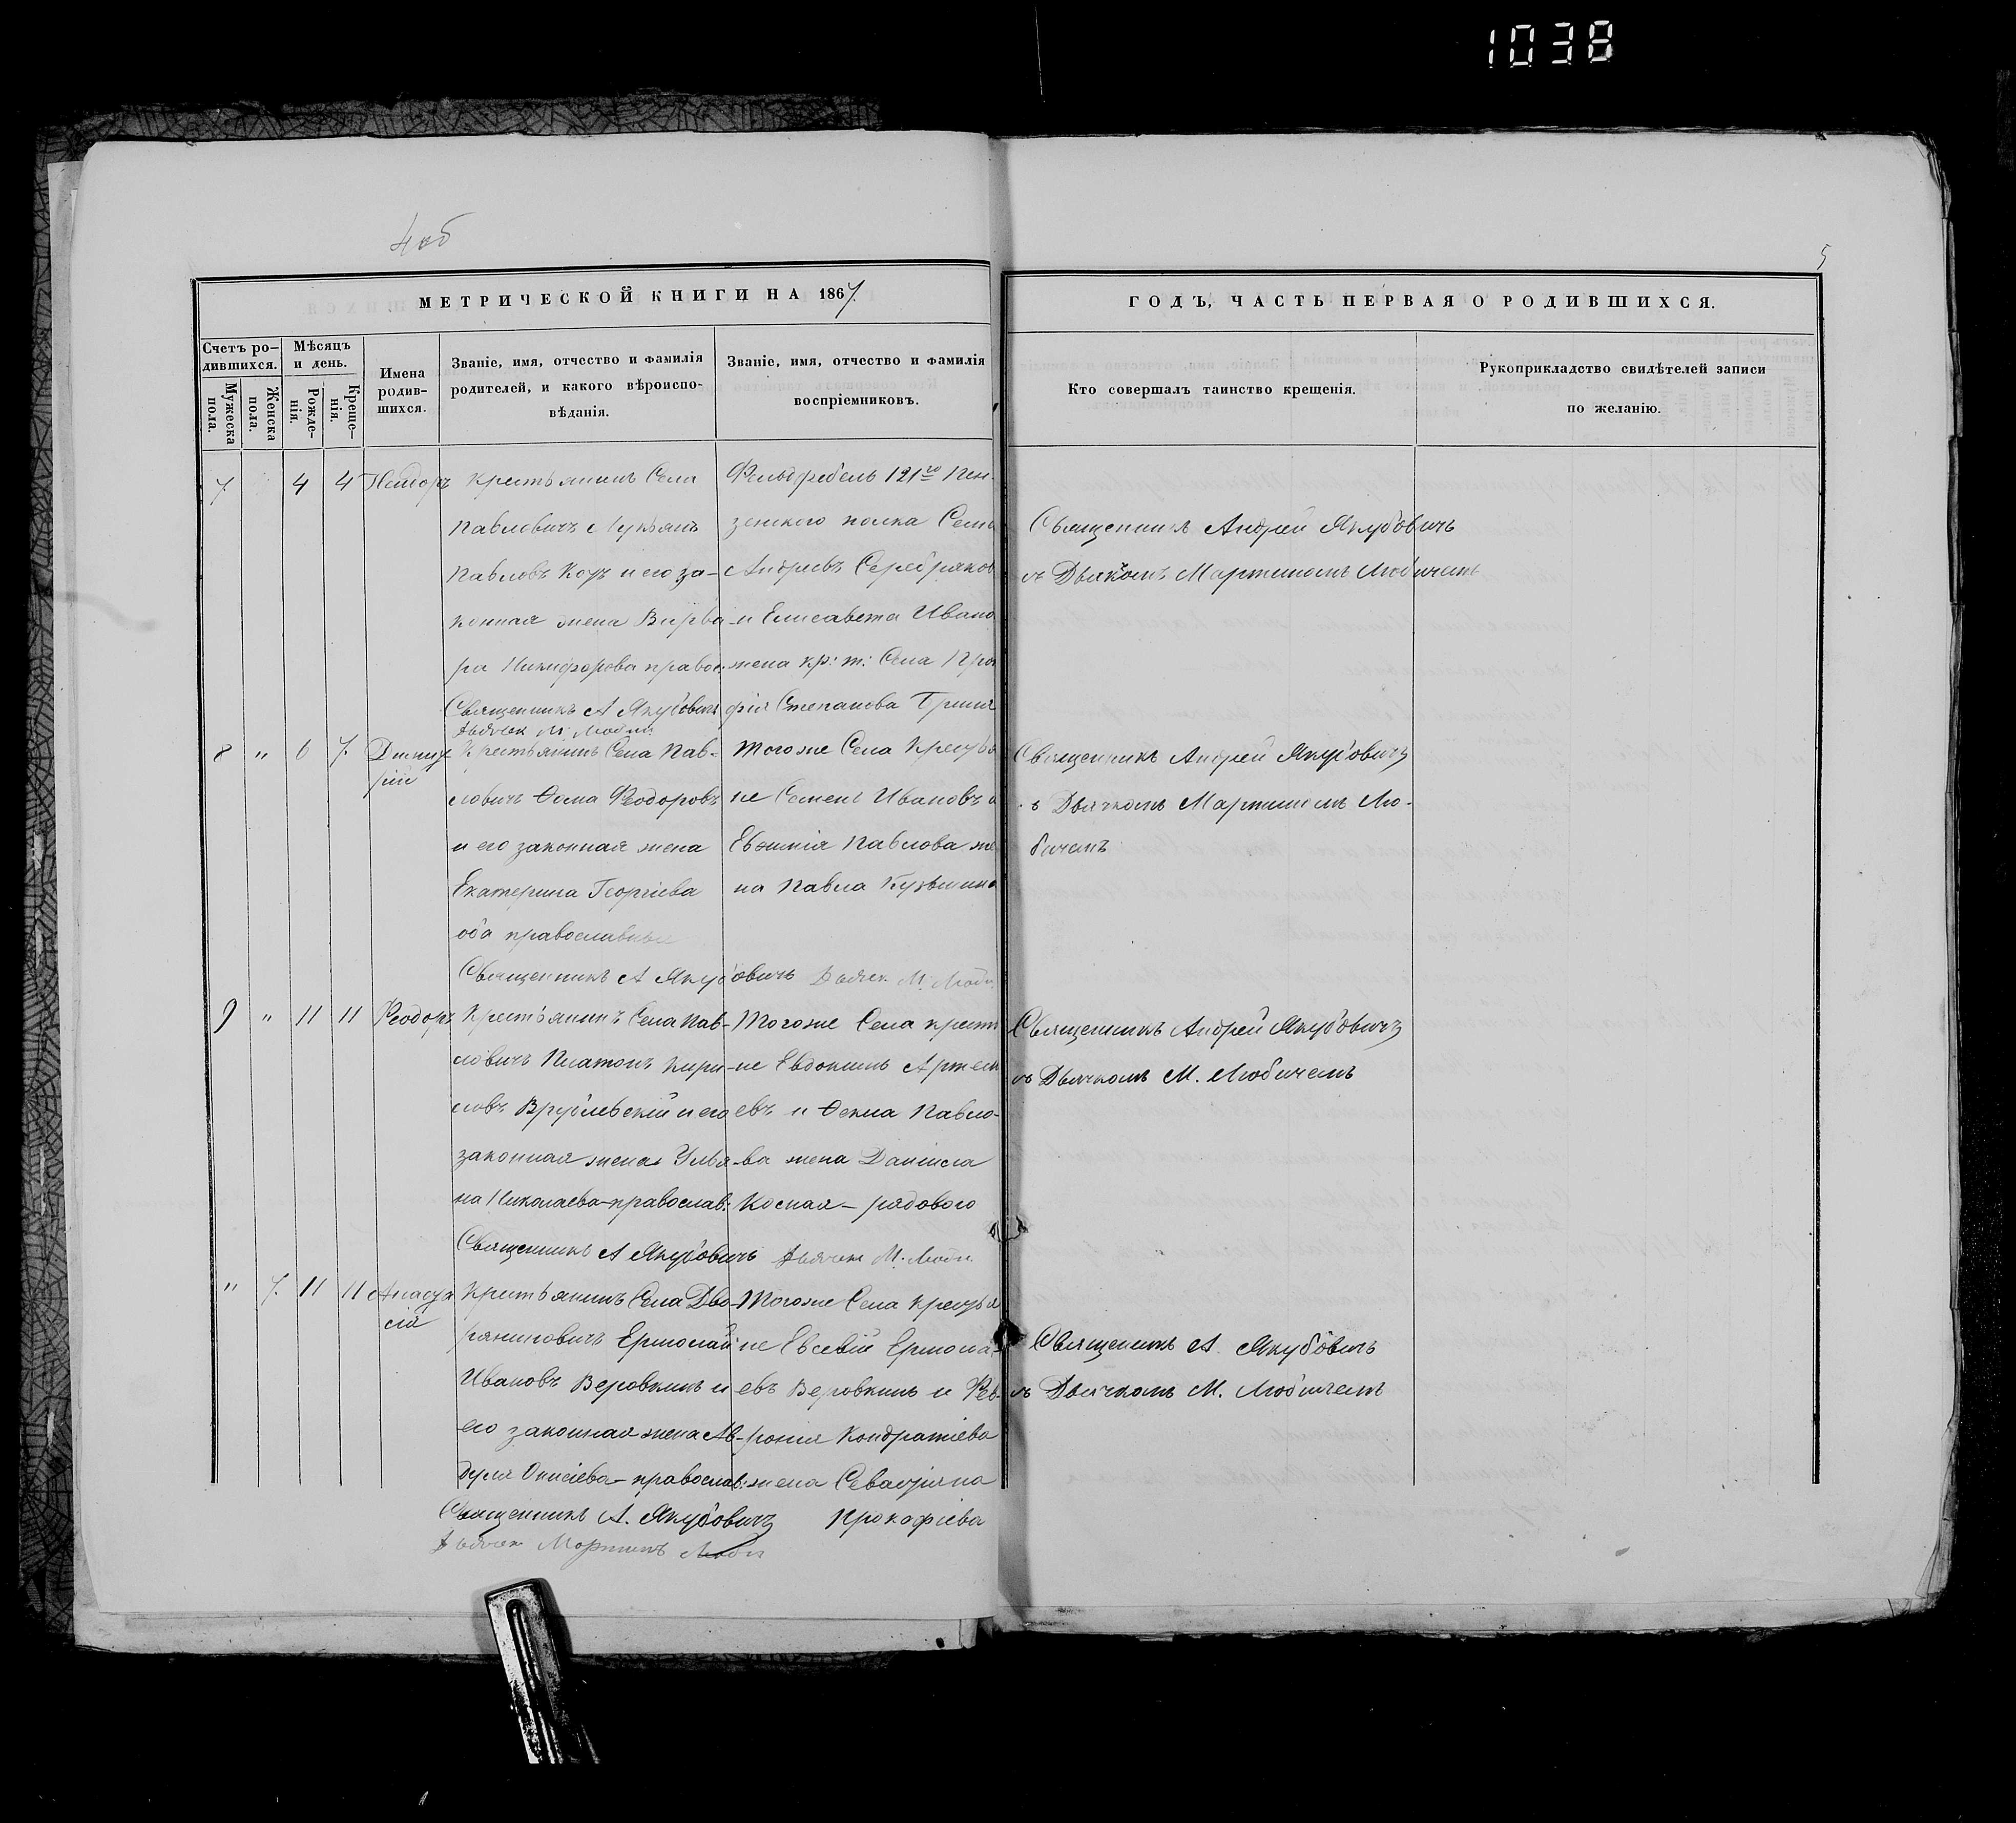 1038
4 об
5
МЕТРИЧЕСКОЙ КНИГИ НА 1867.
ГОДЪ, ЧАСТЬ ПЕРВАЯ О РОДИВШИХСЯ.
Счетъ ро-
дившихся.
Мужеска
пола.
Женска
пола.
Мѣсяцъ
и день.
Рожде-
нія.
Креще-
нія.
Имена
родив-
шихся.
Званіе, имя, отчество и фамилія
родителей, и какого вѣроиспо-
вѣданія.
Званіе, имя, отчество и фамилія
воспріемниковъ.
Кто совершалъ таинство крещенія.
Рукоприкладство свидѣтелей записи
по желанію.
7. 4 4
Крестьянинъ Села
Павловичъ Лукьянъ
Павловъ Коз и его за-
конная жена Варва-
ра Никифорова правос.
Священникъ А Якубович
Дьячек М.
Фельдфебель 121го Пен-
зенского полка
Андреевъ Серебряков
и Елисавета Ивано
жена кр: т: Села
фія Степанова
Священникъ Андрей Якубовичъ
съ Дьячкомъ Мартиномъ Любичемъ
8 " 6 7. Димит-
рій
Крестьянинъ Села Пав-
ловичъ Ѳома Феодоровъ
и его законная жена
Екатерина Георгіева
оба православные
Священникъ А Якубовичъ Дьячек М. Люби
Тогоже Села Крестья
не Семенъ Ивановъ и
Евфимія Павлова же
на Павла Кузьмина
Священникъ Андрей Якубовичъ
съ Дьячкомъ Мартиномъ Лю-
бичемъ
9 " 11 11 Феодоръ
Крестьянинъ Села Пав-
ловичъ Платонъ Кири-
ловъ Врублевскій и его
законная жена Улья-
на Николаева-православ:
Священникъ А Якубовичъ Дьячек М. Люби
Тогоже Села крест
не Евдокимъ Артем
евъ и Ѳекла Павло-
ва жена Даниила
Косная - рядового
Священникъ Андрей Якубовичъ
съ Дьячкомъ М. Любичемъ
" 7. 11 11 Анаста
сія
Крестьянинъ Села Дво-
ряниновичъ Ермолай
Ивановъ Веровкинъ и
его законная жена Ав-
дуля Онисіева-православ:
Священникъ А. Якубовичъ
Дьячек Мартинъ Люби
Тогоже Села Крестья
не Евсевій Ермола-
евъ Веровкинъ и Фев-
ронія Кондратіева
жена Севастіяна
Прокофіева
Священникъ А. Якубовичъ
съ Дьячкомъ М. Любичемъ